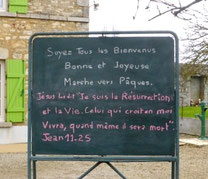 Soyez Tous les Bienvenus
Bonne et Joyeuse
Marche vers Pâques.
Jésus lui dit "Je suis la Résurrection
et la Vie. Celui qui croit en moi
Vivra, quand même il sera mort"
Jean 11.25